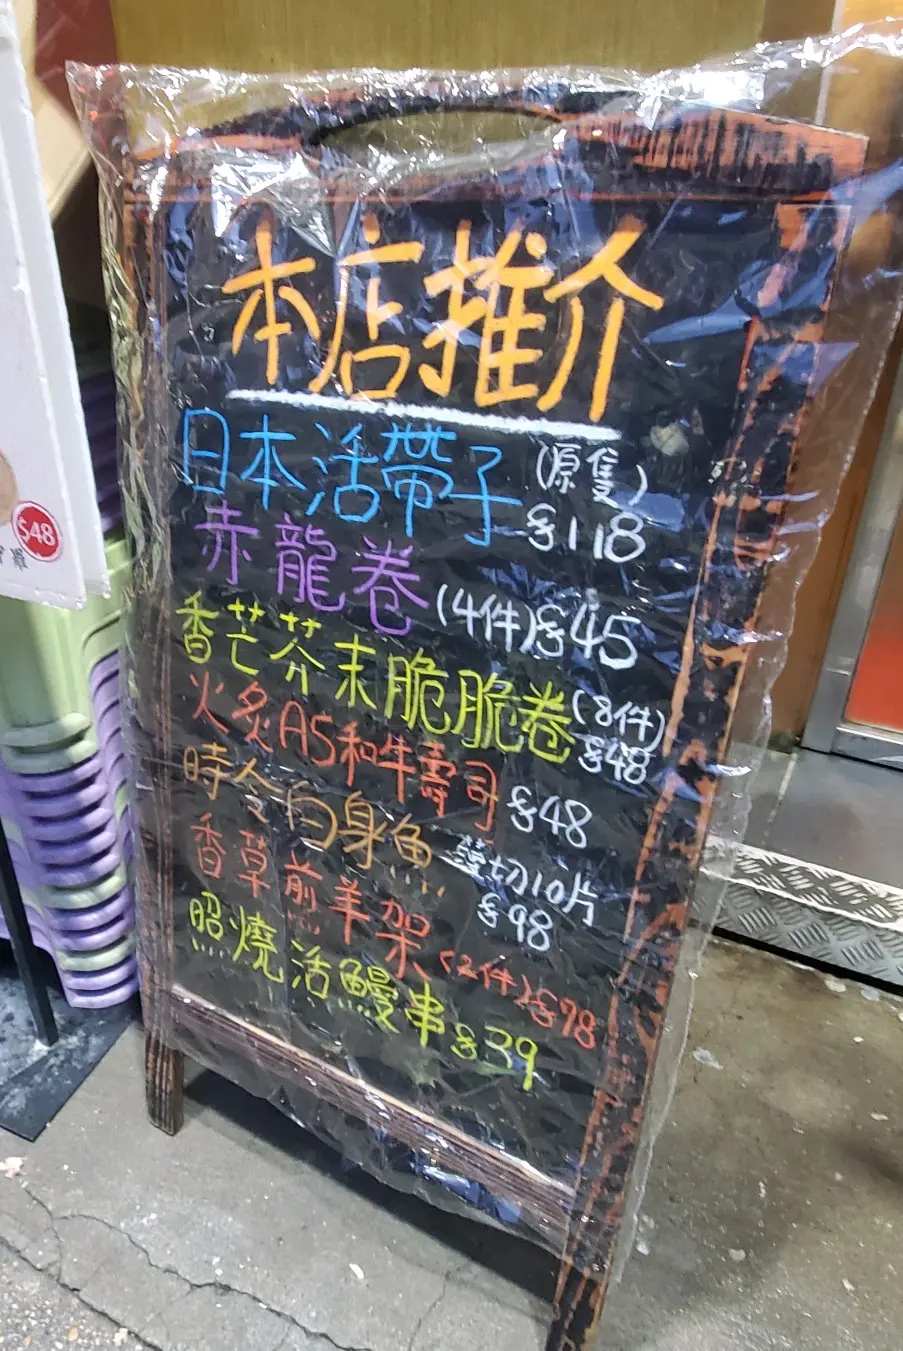 本店推介
日本活帶子(原隻)
$118
赤龍卷(4件)$45
香芒芥末脆脆卷(8件)
$48
火炙A5和牛壽司 $48
時令白身魚 薄切10片
$98
香草煎羊架(2件)$98
照燒活鰻串$39
$48